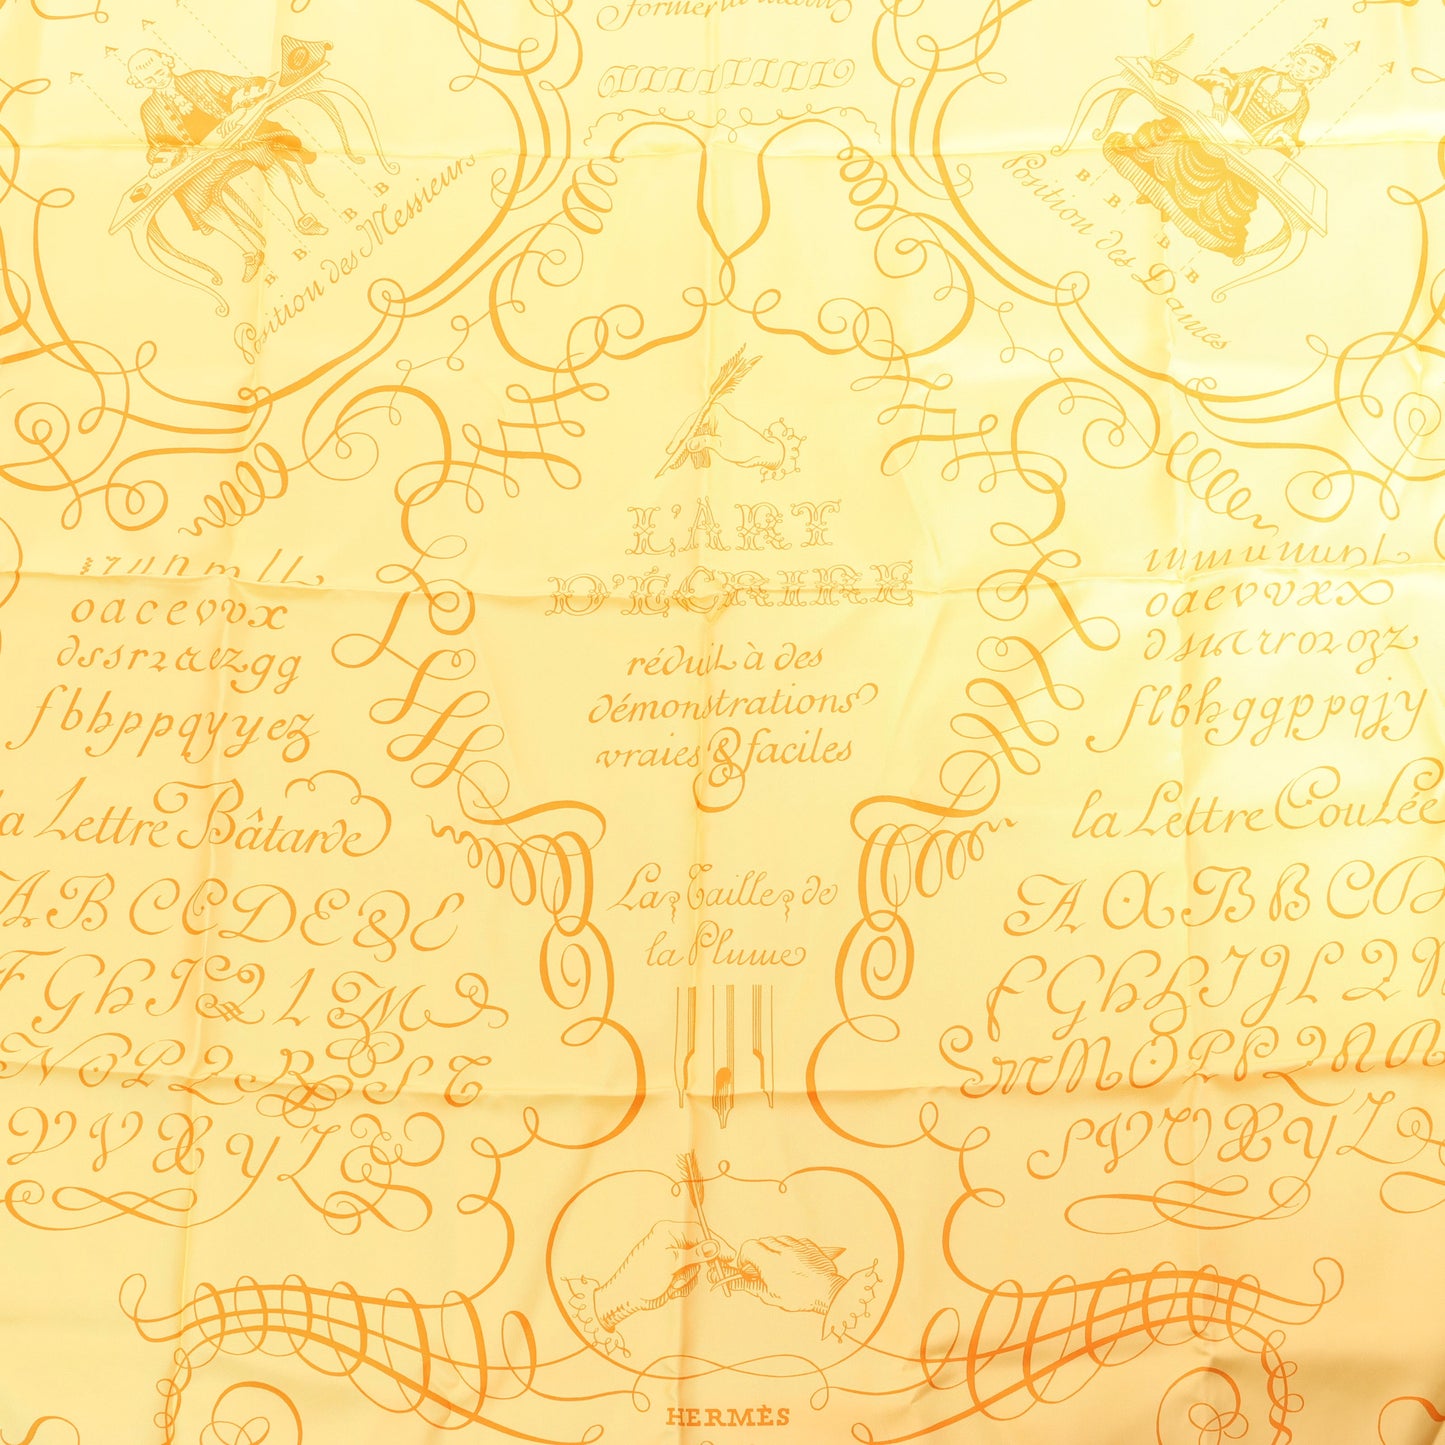 former
A A A A
B B B B
Position des Messieurs
A A A A
B B B B
Position des Dames
L'ART
D'ÉCRIRE
réduit à des
démonstrations
vraies & faciles
oacevvx
fbhppqyyez
la Lettre Bâtarde
A B C C D E & E
F G h I 2 L M
N O P 2 R S T
V V X Y Z
La Taille de
la Plume
oaevvxx
flbhggppqjy
la Lettre Coulée
A A B B C O
F G h h I J L 2
S m M O P P 2
S V V X Y Z
HERMÈS